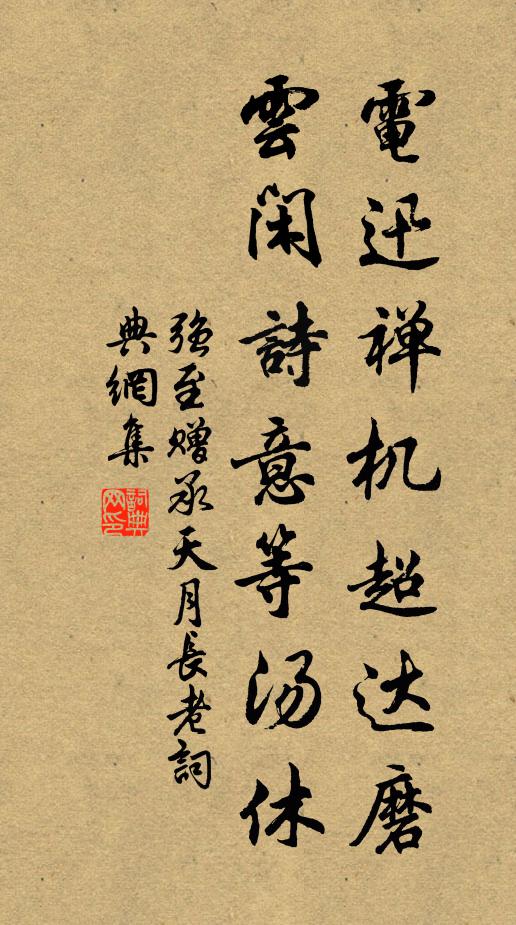 電迅禅机超达磨
雲闲詩意等汤休
强至赠承天月長老詞
典網集
詞典
网印